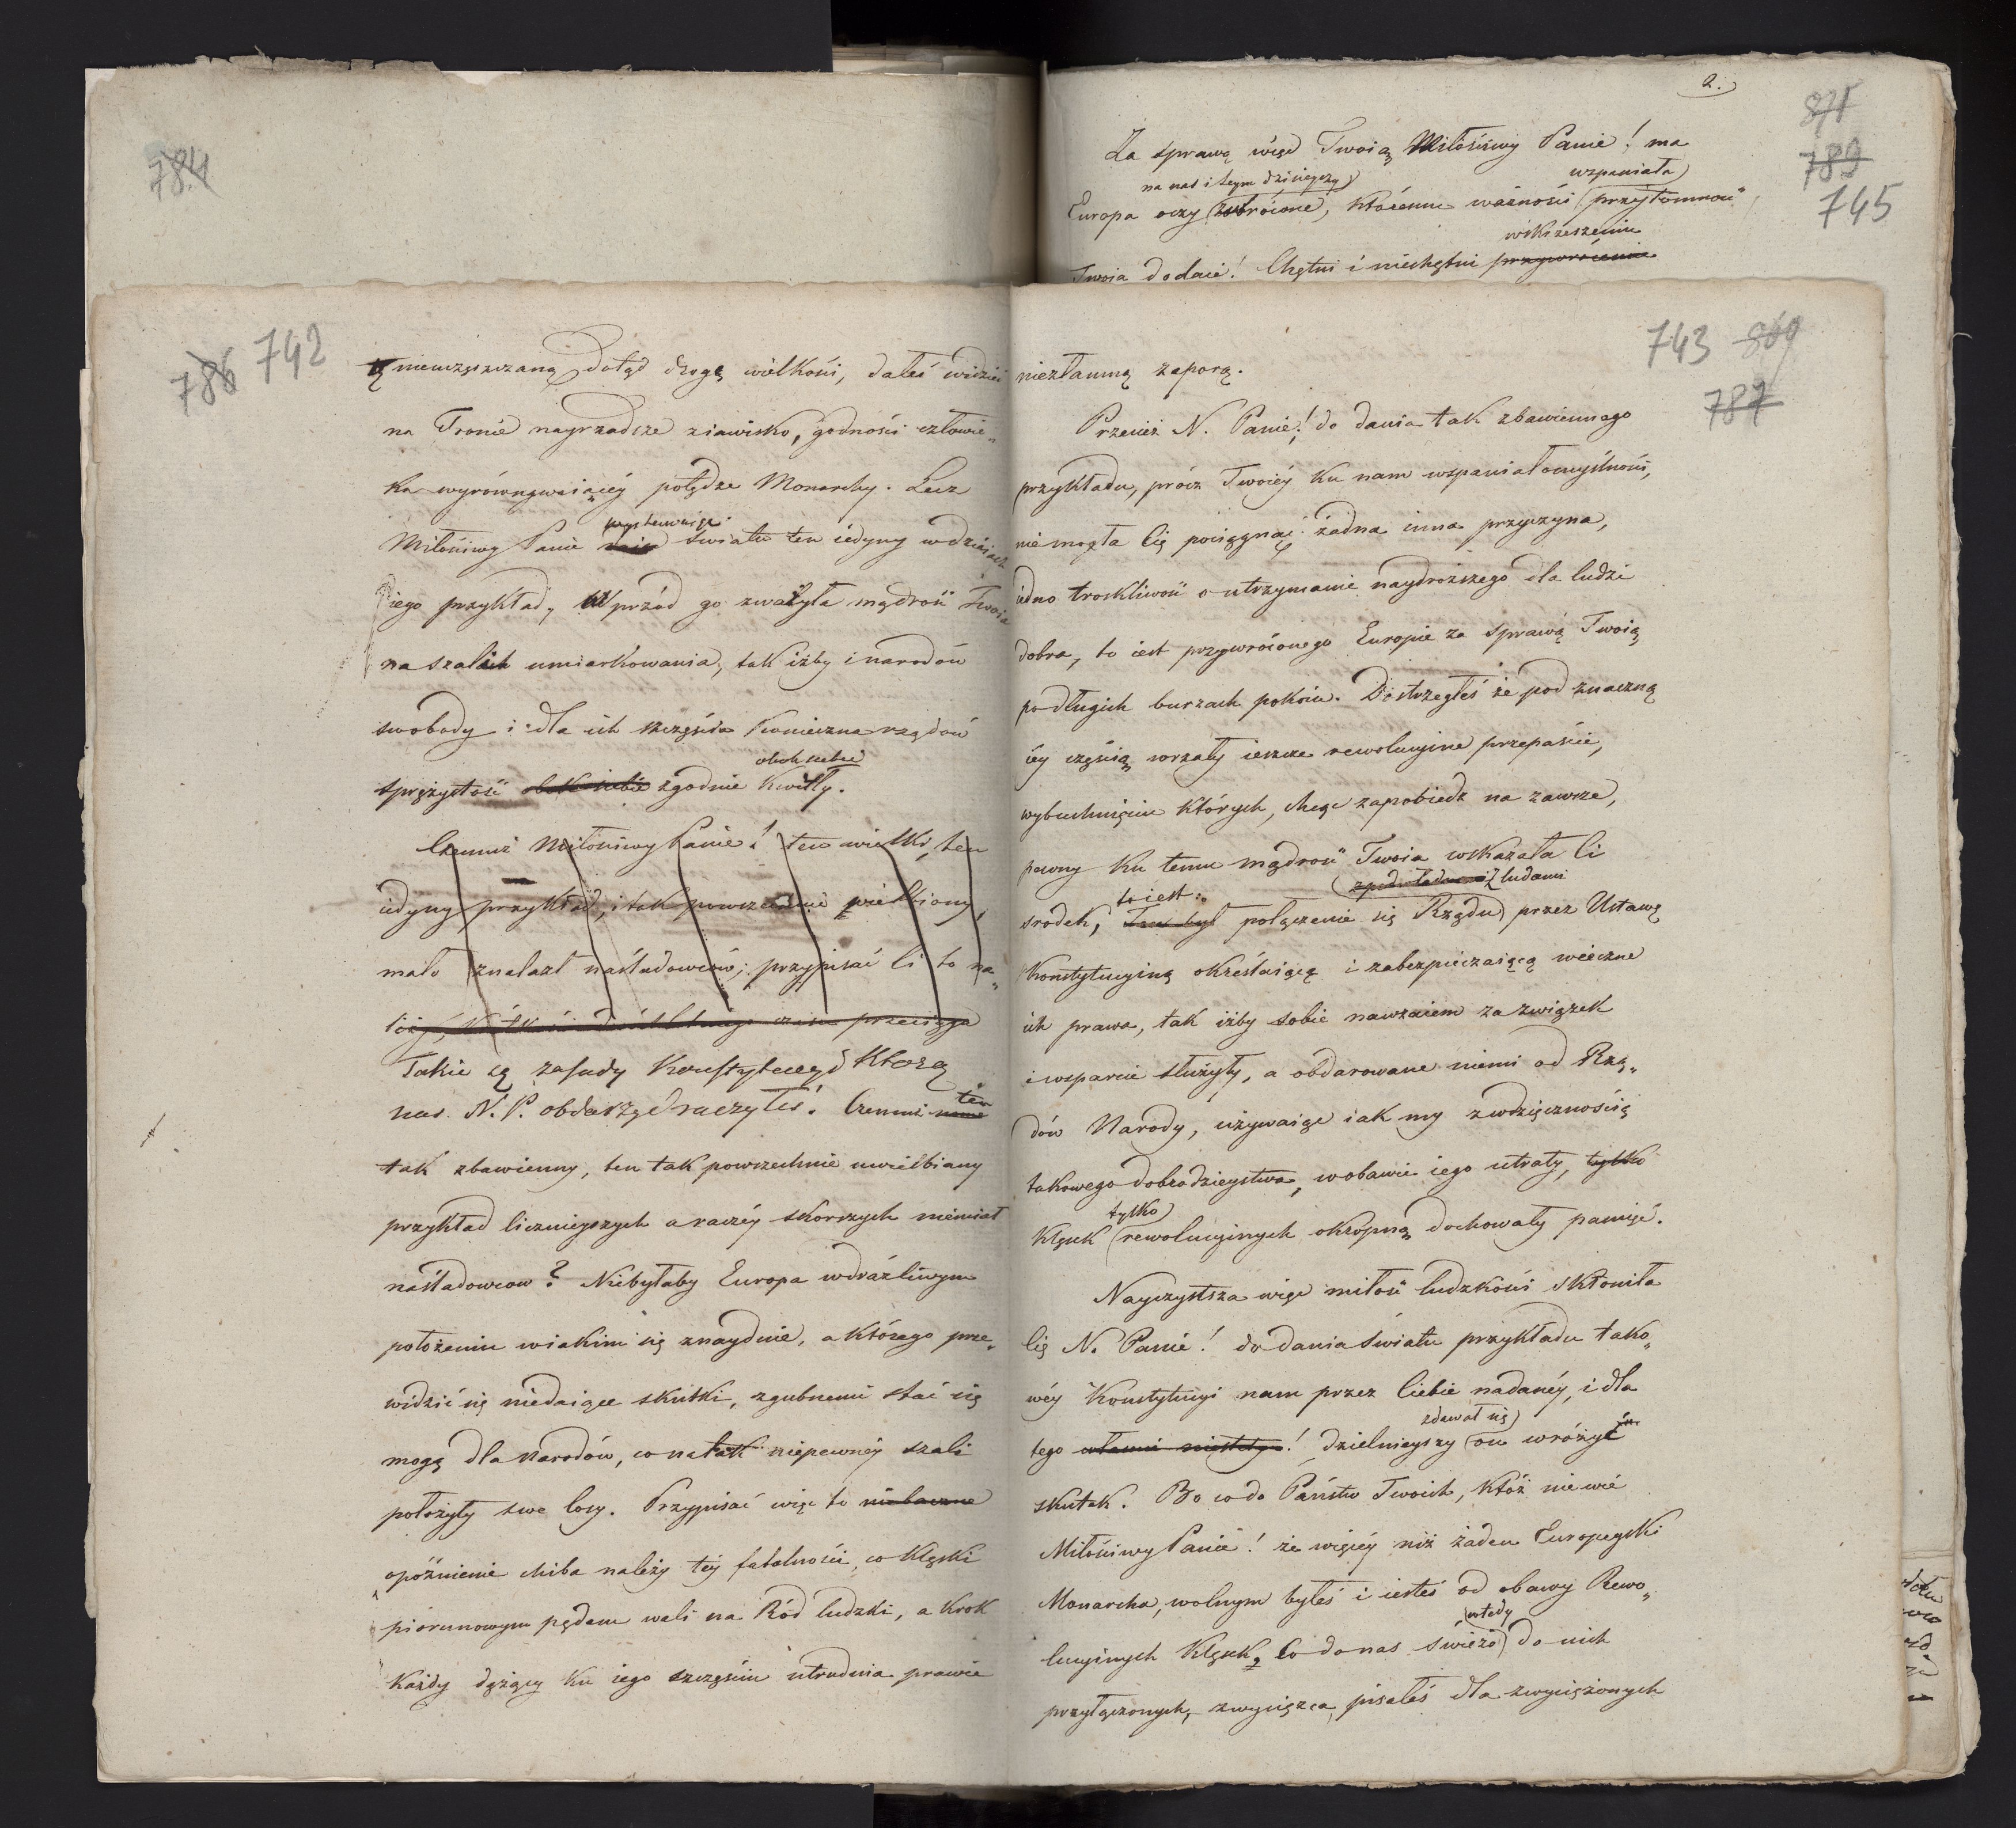 784
2.
871
789
745
Za sprawą więc Twoią Miłościwy Panie! ma
na nas i Seym dzisieyszy wspaniała
Europa oczy zwrócone, któremu ważności przytomność
wskrzeszeniu
Twoia dodaie! Chętni i niechętni przywrócenie
786 742
tę nieuczęszczaną dotąd drogę wielkości, dałeś widzieć
na Tronie nayrzadsze ziawisko, godności człowie„
ka wyrównywaiącéy potędze Monarchy. Lecz
wystawuiąc
Miłościwy Panie daiąc światu ten iedyny w dzieiach
iego przykład, Wprzód go zważyła mądrość Twoia
na szalach umiarkowania, tak iżby i narodów
swobody i dla ich szczęścia konieczna rządów
obok siebie
sprężystość obok siebie zgodnie kwitły.
Czemuż Miłościwy Panie! ten wielki, ten
iedyny przykład, i tak powszechnie wielbiony,
mało znalazł naśladowców; przypisać li to na„
leży, czasu przeciągu
Takie są zasady Konstytucyi którą
nas N. P. obdarzyć raczyłeś. Czemuż ten
tak zbawienny, ten tak powszechnie uwielbiany
przykład licznieyszych a raczéy skorszych niemiał
naśladowcow? Niebyłaby Europa w drażliwym
położeniu w iakim się znayduie, a którego prze„
widzić się niedaiące skutki, zgubnemi stać się
mogą dla Narodów, co na tak niepewnéy szali
położyły swe losy. Przypisać więc to niebaczne
opóźnienie chiba należy téy fatalności, co klęski
piorunowym pędem wali na Ród ludzki, a krok
każdy dążący ku iego szczęściu utrudnia prawie
743 869
787
niezłamną zaporą.
Przecież N. Panie! do dania tak zbawiennego
przykładu, prócz Twoiéy ku nam wspaniałomyślności,
niemogła Cię pociągnąć żadna inna przyczyna,
iedno troskliwość o utrzymanie naydroższego dla ludzi
dobra, to iest przywróconego Europie za sprawą Twoią
po długich burzach pokoiu. Dostrzegłeś że pod znaczną
iéy częścią wrzały ieszcze rewolucyine przepaście,
wybuchnięciu których, chcąc zapobiedz na zawsze,
pewny ku temu mądrość Twoia wskazała Ci
to iest: z ludami
srodek, Ten był połączenie się Rządu przez Ustawę
Konstytucyiną określaiącą i zabezpieczaiącą wieczne
ich prawa, tak iżby sobie nawzaiem za związek
i wsparcie służyły, a obdarowane niemi od Rzą„
dów Narody, używaiąc iak my z wdzięcznością
takowego dobrodzieystwa, w obawie iego utraty, tylko
tylko
klęsk rewolucyinych okropną dochowały pamięć.
Nayczystsza więc miłość ludzkości skłoniła
Cię N. Panie! do dania światu przykładu tako„
wéy Konstytucyi nam przez Ciebie nadanéy, i dla
zdawał się
tego właśnie niestety! dzielnieyszy on wróżyć
skutek. Bo co do Państw Twoich, któż nie wié
Miłościwy Panie! że więcéy niż żaden Europeyski
Monarcha, wolnym byłeś i iesteś od obawy Rewo„
wtedy
lucyinych klęsk, Co do nas świeżo do nich
przyłączonych, zwycięzca, pisałeś dla zwyciężonych